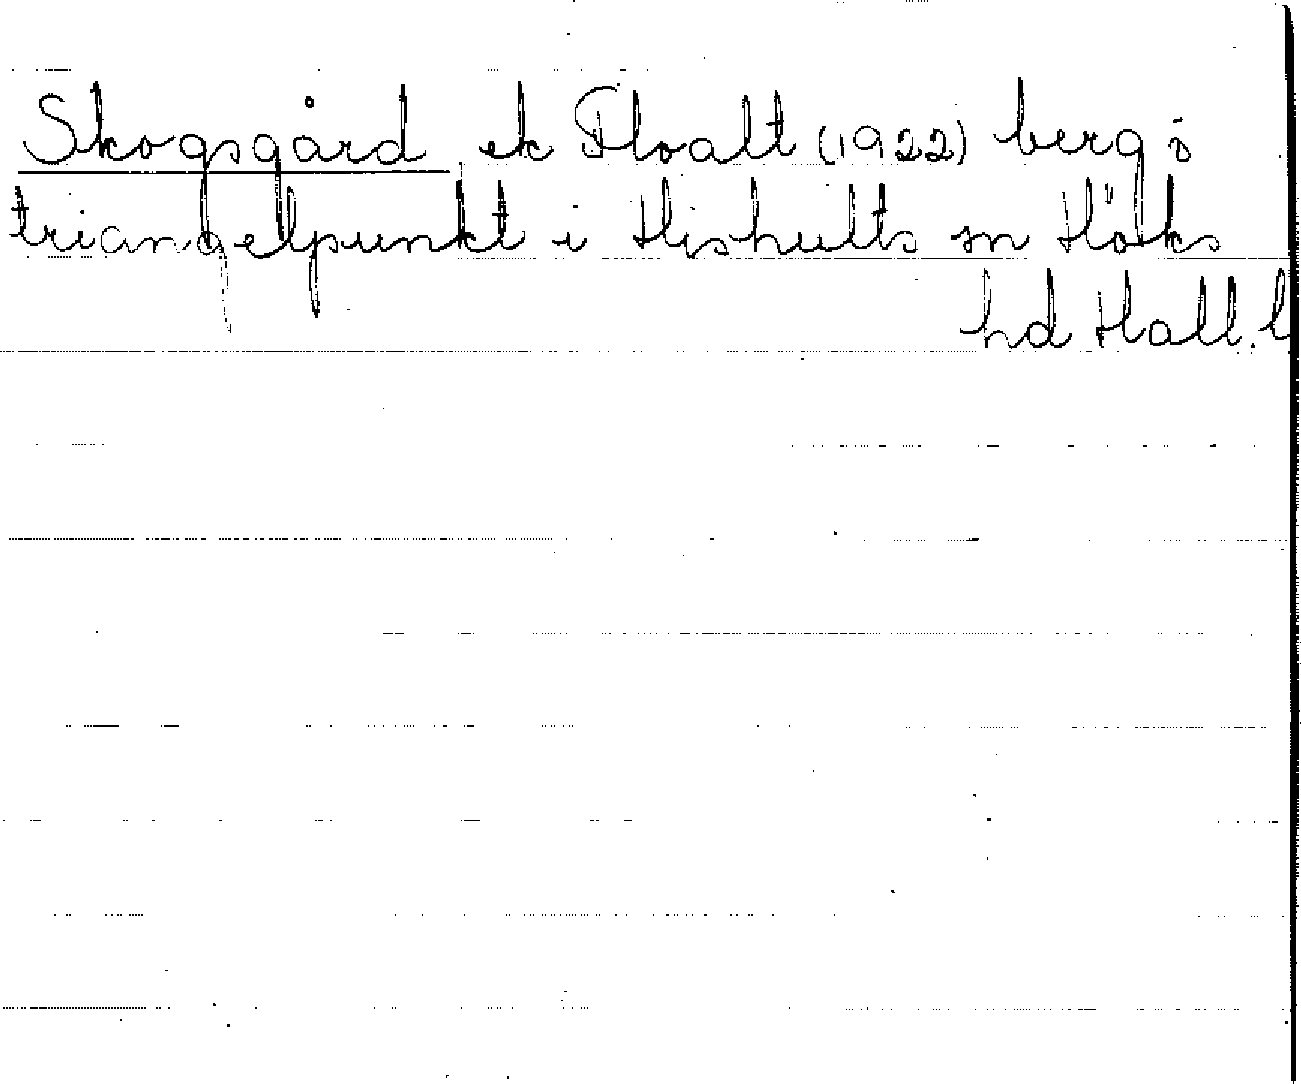 Skogsgård ek Floalt (1922) berg ö
triangelpunkt i Hishults sn Höks
hd Hall. l